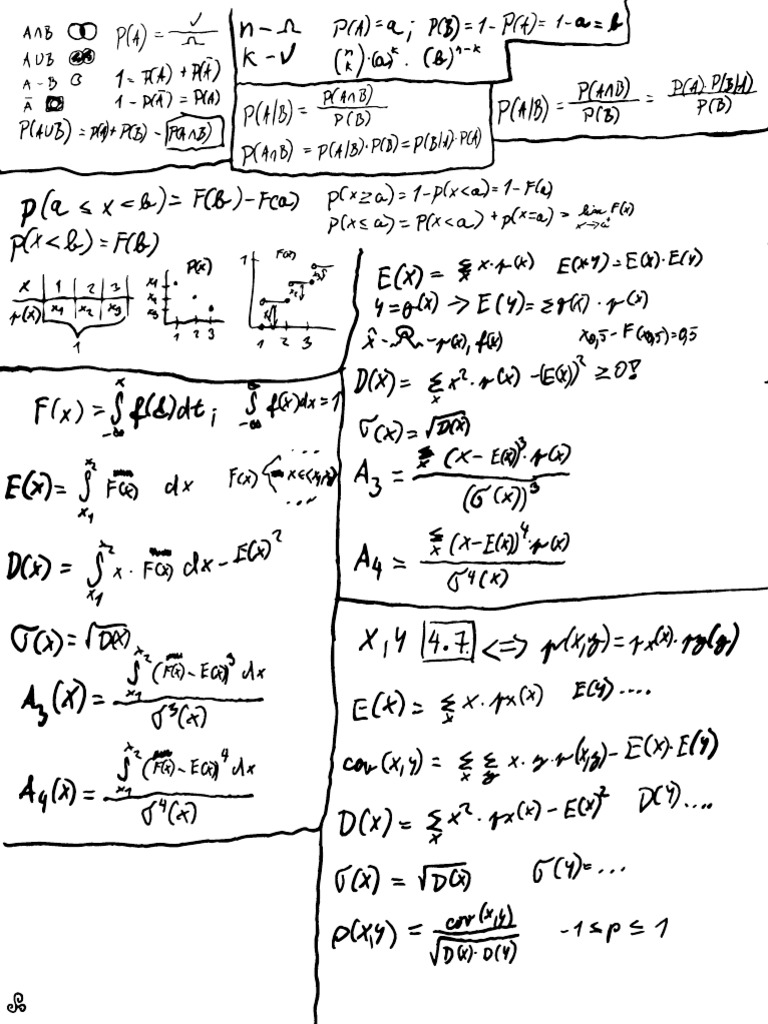 A∩B
A∪B
A-B
Ā
P(A) = √/Ω
1 = P(A) + P(Ā)
1 - P(Ā) = P(A)
P(A∪B) = P(A) + P(B) - P(A∩B)
n - Ω
k - √
P(A) = a ; P(B) = 1 - P(A) = 1 - a = b
(n k) · (a)^k · (b)^(n-k)
P(A|B) = P(A∩B) / P(B)
P(A∩B) = P(A|B) · P(B) = P(B|A) · P(A)
P(A|B) = P(A∩B) / P(B) = P(A) · P(B|A) / P(B)
p(a ≤ x < b) = F(b) - F(a)
p(x < b) = F(b)
p(x ≥ a) = 1 - p(x < a) = 1 - F(a)
p(x ≤ a) = P(x < a) + p(x = a) = lim x→a+ F(x)
x 1 2 3
p(x) x1 x2 x3
1
p(x)
x1
x2
x3
1 2 3
F(x)
1
1 2 3
E(x) = Σx x · p(x) E(x·y) = E(x) · E(y)
y = g(x) → E(y) = Σ g(x) · p(x)
x̂ - - p(x), f(x) x0,5 - F(x0,5) = 0,5
D(x) = Σx x² · p(x) - (E(x))² ≥ 0!
σ(x) = √D(x)
A3 = Σx (x - E(x))³ · p(x) / (σ(x))³
A4 = Σx (x - E(x))⁴ · p(x) / σ⁴(x)
F(x) = ∫-∞^x f(t) dt ; ∫-∞^∞ f(x) dx = 1
E(x) = ∫x1^x2 F(x) dx F(x)
D(x) = ∫x1^x2 x · F(x) dx - E(x)²
σ(x) = √D(x)
A3(x) = ∫x1^x2 (F(x) - E(x))³ dx / σ³(x)
A4(x) = ∫x1^x2 (F(x) - E(x))⁴ dx / σ⁴(x)
X, Y 4.7. <=> p(x,y) = px(x) · py(y)
E(x) = Σx x · px(x) E(y) ....
cov(x,y) = Σx Σy x · y · p(x,y) - E(x) · E(y)
D(x) = Σx x² · px(x) - E(x)² D(y) ....
σ(x) = √D(x) σ(y) = ...
ρ(x,y) = cov(x,y) / √D(x) · D(y) -1 ≤ ρ ≤ 1